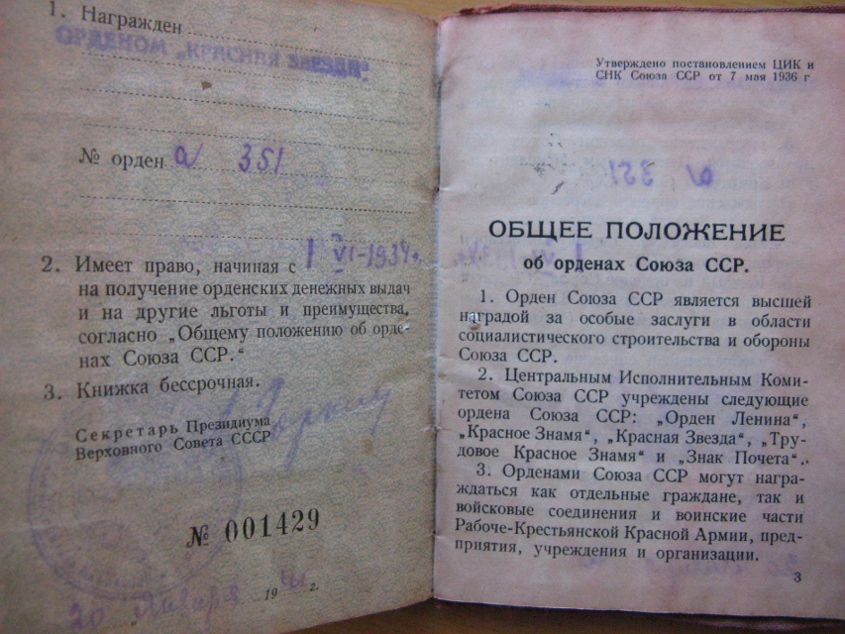 1. Награжден
ОРДЕНОМ „КРАСНАЯ ЗВЕЗДА"
№ орден а/ 351
2. Имеет право, начиная с 1 VI-1934 г.
на получение орденских денежных выдач
и на другие льготы и преимущества,
согласно „Общему положению об орде-
нах Союза ССР."
3. Книжка бессрочная.
Секретарь Президиума
Верховного Совета СССР
№ 001429
20 Января 1941 г.
Утверждено постановлением ЦИК и
СНК Союза ССР от 7 мая 1936 г
ОБЩЕЕ ПОЛОЖЕНИЕ
об орденах Союза ССР.
1. Орден Союза ССР является высшей
наградой за особые заслуги в области
социалистического строительства и обороны
Союза ССР.
2. Центральным Исполнительным Коми-
тетом Союза ССР учреждены следующие
ордена Союза ССР: „Орден Ленина",
„Красное Знамя", „Красная Звезда", „Тру-
довое Красное Знамя" и „Знак Почета".
3. Орденами Союза ССР могут награ-
ждаться как отдельные граждане, так и
войсковые соединения и воинские части
Рабоче-Крестьянской Красной Армии, пред-
приятия, учреждения и организации.
3